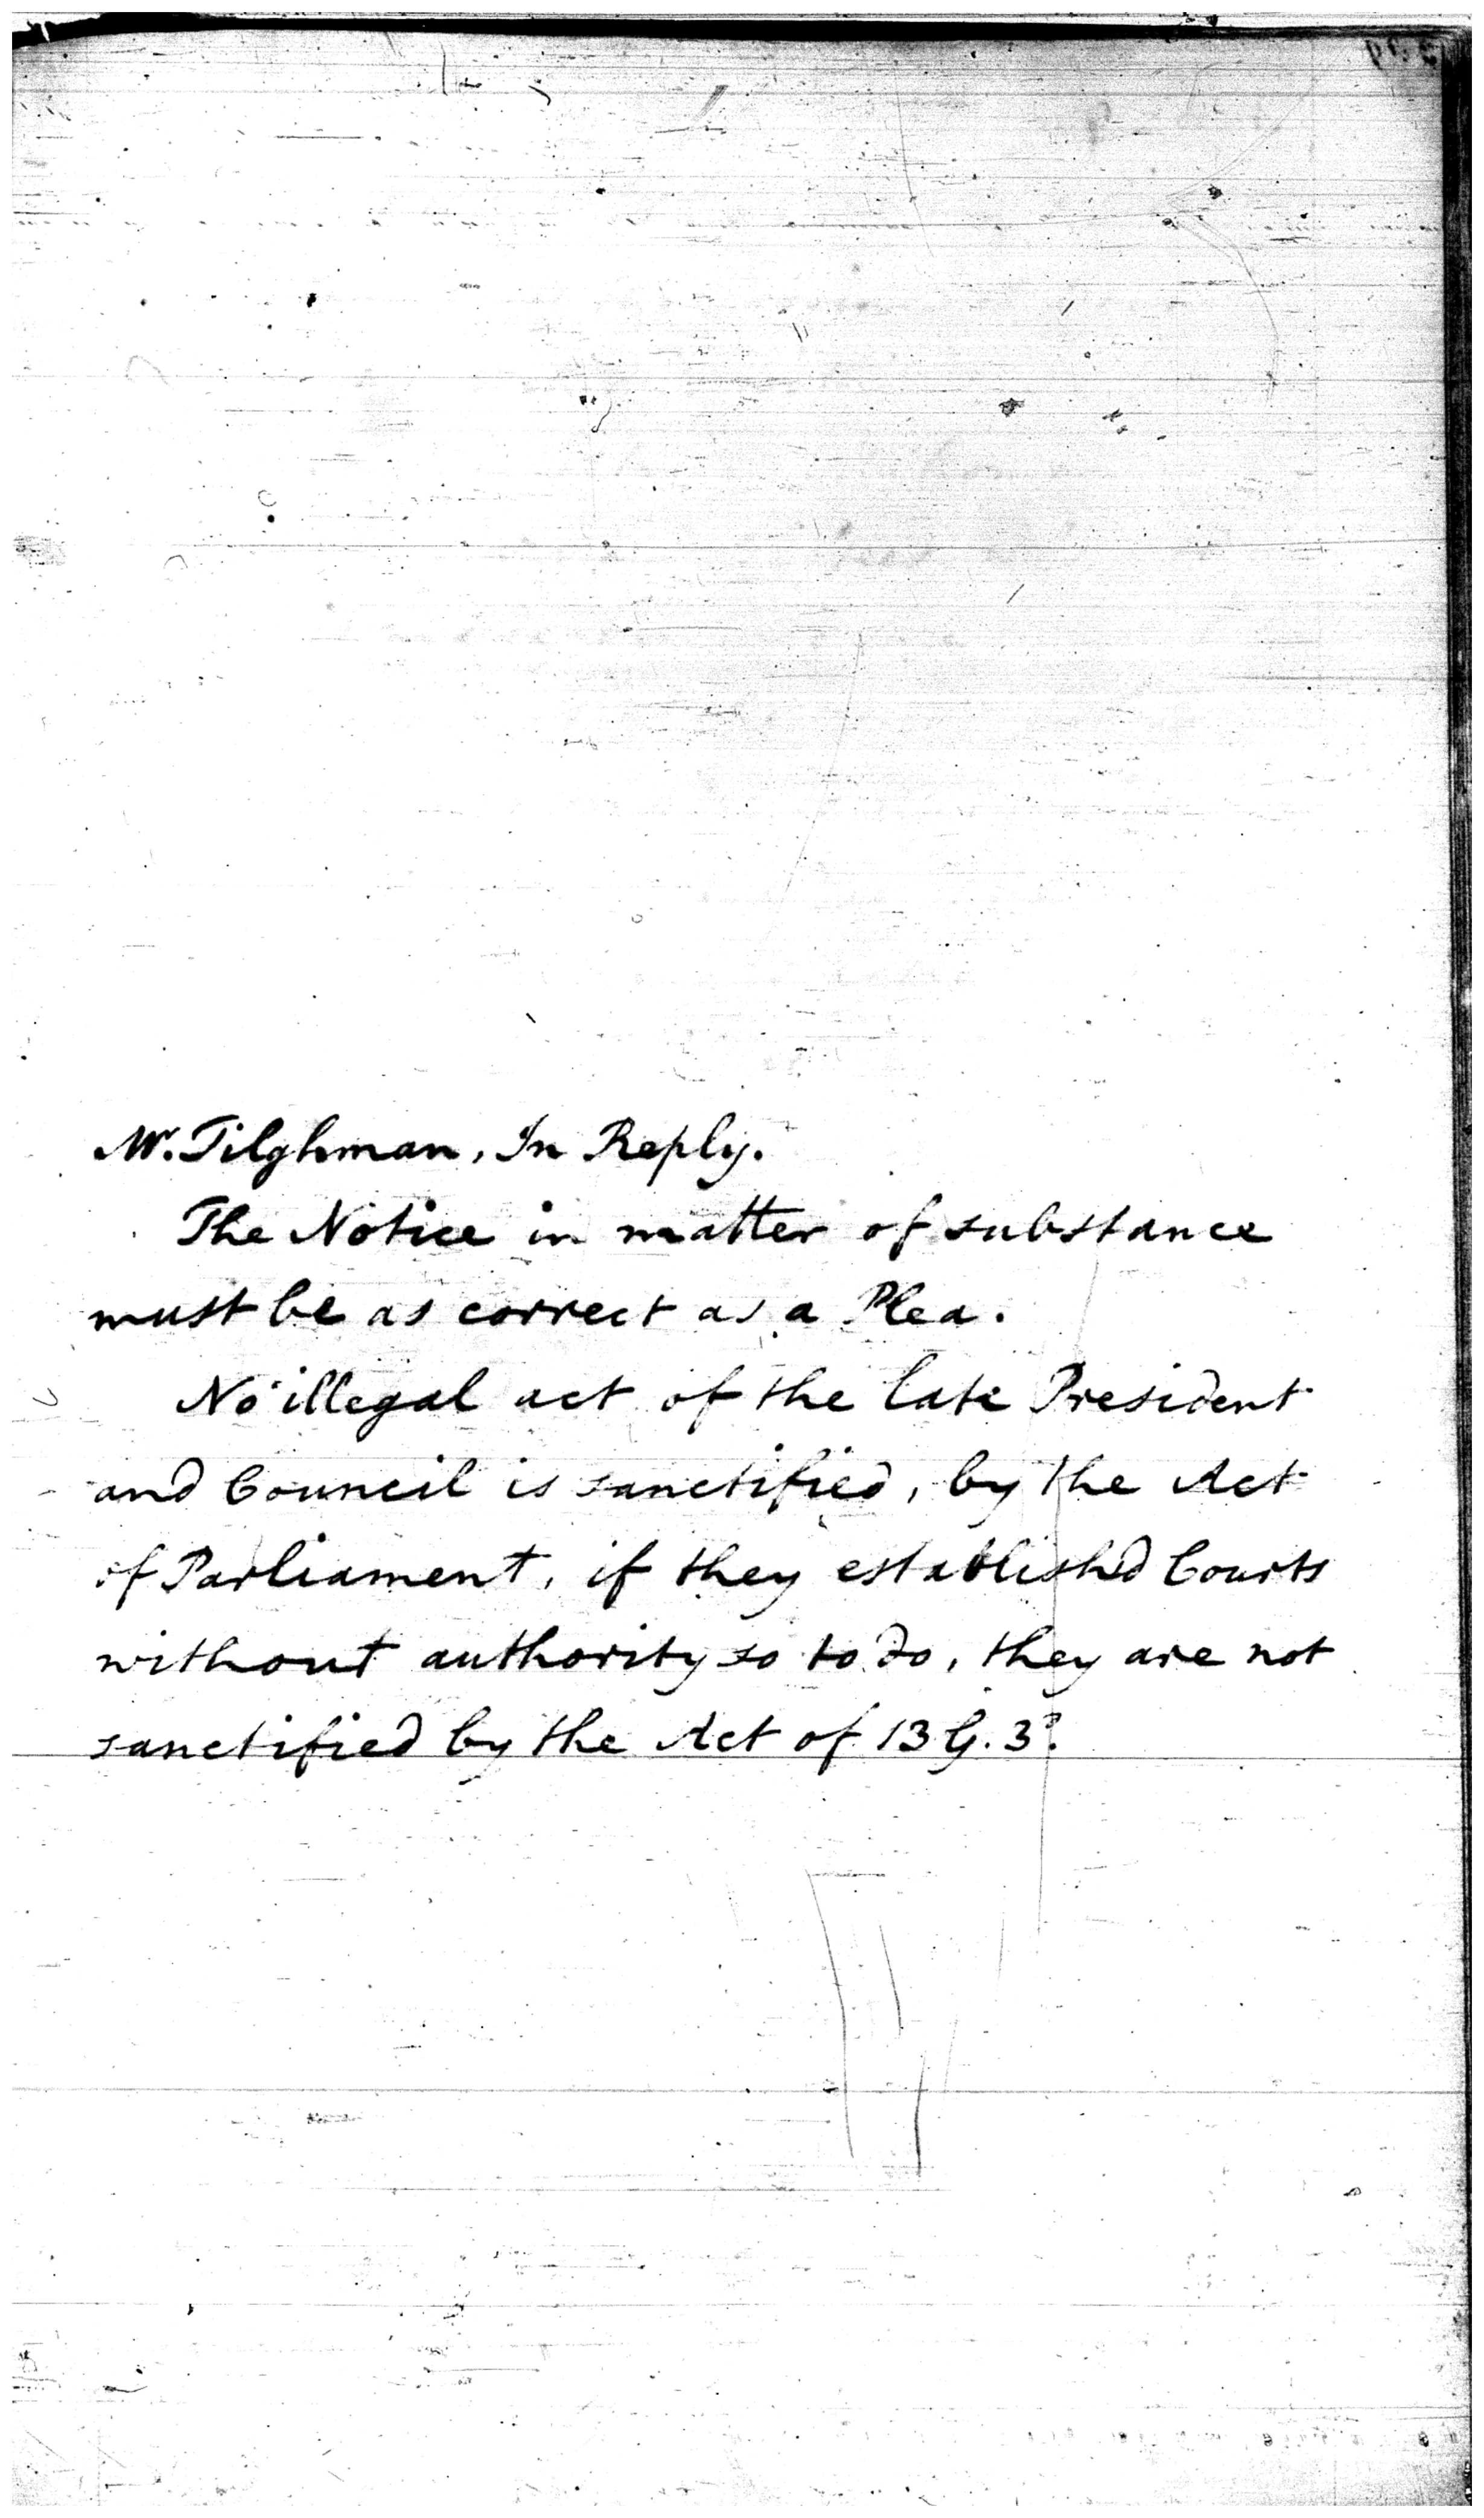 Mr. Tilghman, In Reply.
The Notice in matter of substance
must be as correct as a Plea.
No illegal act of the late President
and Council is sanctified, by the Act
of Parliament, if they establishd Courts
without authority so to do, they are not
sanctified by the Act of 13 G. 3d.